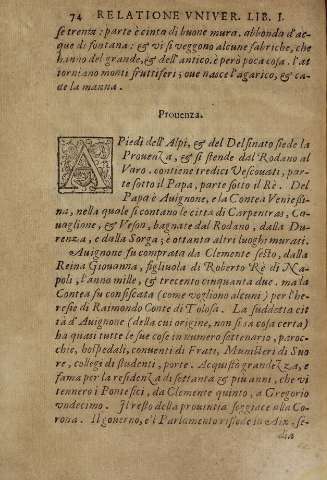 74 RELATIONE VNIVER. LIB. I.
se trenta: parte è cinta di buone mura. abbonda d'ac-
que di fontana: & vi si veggono alcune fabriche, che
hanno del grande, & dell'antico. è però poca cosa. l'at
torniano monti fruttiferi; oue nasce l'agarico, & ca-
de la manna.
Prouenza.
A Piedi dell'Alpi, & del Delfinato siede la
Prouenza, & si stende dal Rodano al
Varo. contiene tredici Vescouati, par-
te sotto il Papa, parte sotto il Rè. Del
Papa è Auignone, e la Contea Veniessi-
na, nella quale si contano le città di Carpentras, Ca-
uaglione, & Veson, bagnate dal Rodano, dalla Du-
renza, e dalla Sorga; è ottanta altri luoghi murati.
Auignone fu comprata da Clemente sesto, dalla
Reina Giouanna, figliuola di Roberto Rè di Na-
poli, l'anno mille, & trecento cinquanta due. ma la
Contea fu confiscata (come vogliono alcuni) per l'he-
resie di Raimondo Conte di Tolosa. La suddetta cit
tà d'Auignone (della cui origine, non si sà cosa certa)
ha quasi tutte le sue cose in numero settenario, paroc-
chie, hospedali, conuenti di Frati, Munisteri di Suo
re, collegi di studenti, porte. Acquistò grandezza, e
fama per la residenza di settanta & più anni, che vi
tennero i Pontefici, da Clemente quinto, a Gregorio
vndecimo. Il resto della prouintia soggiace alla Co-
rona. Il gouerno, e'l Parlamento risiede in Ain. se-
dia